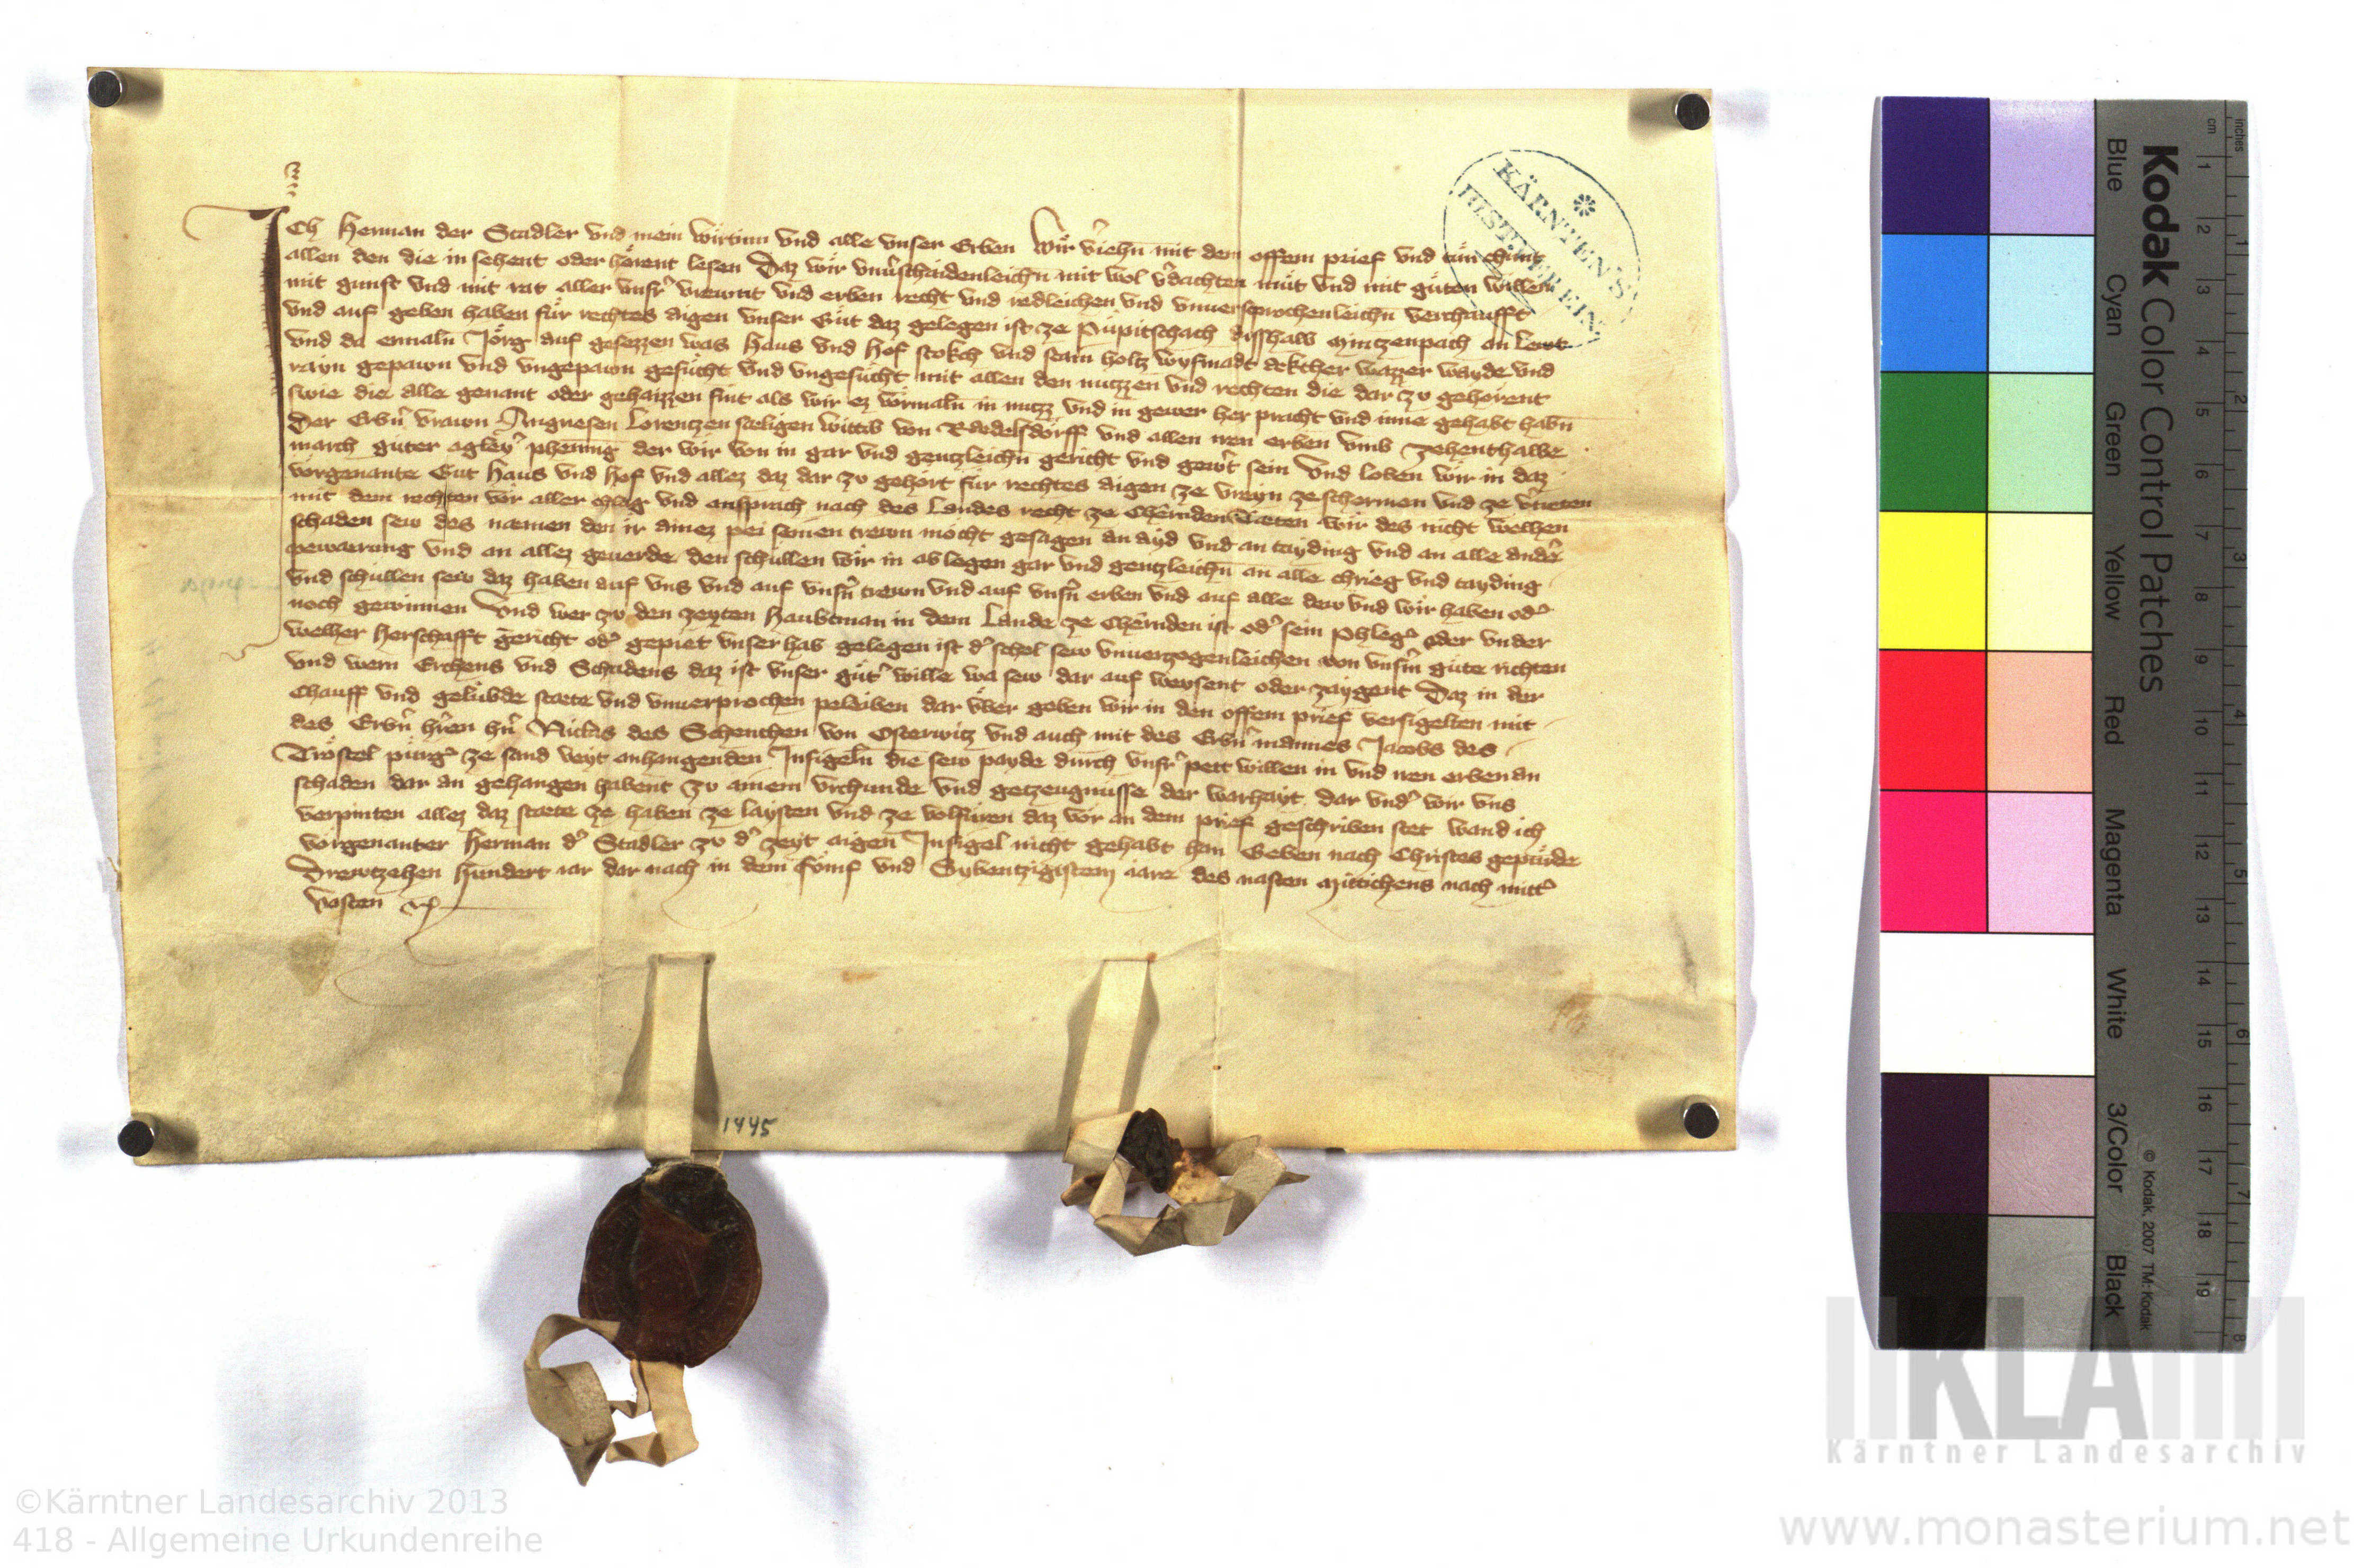 Ich Herman der Stadler vnd mein wirtinn vnd alle vnser Erben Wir v̂iehn̄ mit dem offem prief vnd tün chünt
allen den die in sehent oder hörent lesen Daz wir vnuͤ̂schaidenleichn̄ mit wol v̂dachtem müt vnd mit güten willem
mit gunst vnd mit rat aller vnsr̂ vrewnt vnd erben recht vnd redleichen vnd vnuersprochenleichn̄ verchaufft
vnd auf geben haben für rechtes aigen vnser Güt daz gelegen ist ze Püpitschach disshalb Mintzenpach an
vnd da ermaln̄ Jörg auf gesezzen was Haus vnd Hof stokch vnd stain holtz wysmadt ekcher wazzer wayde vnd
rayn gepawn vnd vngepawn gesücht vnd vngesücht mit allen den nutzzen vnd rechten die dar zv gehörent
swie die alle genant oder gehaizzen sint als wir ez vormaln̄ in nutzz vnd in gewer her pracht vnd inne gehabt habn̄
Der Erbn̂ vrawn Angnesen Lorentzen sæligen wittib von Rædelsdorff vnd allen iren erben vmb Zehenthalbe
march guter agleyˀ phenning der wir von in gar vnd gentzleichn̄ gericht vnd gewˀt sein Vnd loben wir in daz
vorgenante Gut Haus vnd Hof vnd allez daz dar zv gehört für rechtes aigen ze vreyn ze schermen vnd ze v̂treten
mit dem rechten vor aller chlag vnd ansprach nach des Landes recht ze Chêrnden Tæten wir des nicht welhen
schaden sew des næmen den ir ainez pei seinen trewn möcht gesagen an ayd vnd an tayding vnd an alle andˀe
pewarung vnd an allez geuerde den schüllen wir in ablegen gar vnd gentzleichn̄ an alle chrieg vnd tayding
vnd schüllen sew daz haben auf vns vnd auf vnsn̂ trewn vnd auf vnsn̂ erben vnd auf alle dew vnd wir haben odˀ
noch gewinnen Vnd wer zv den zeyten Haubtman in dem Lande ze Chêrnden ist odˀ sein phlegˀ oder vnder
welher Herschafft gericht odˀ gepiet vnser hab gelegen ist dˀ schol sew vnuerzogenleichen von vnsm̂ güte richten
vnd wern Erchens vnd Schadens daz ist vnser gütˀ wille wa sew dar auf weysent oder zaygent Daz in der
Chauff vnd gelübde stæte vnd vnuerprochen peleiben dar über geben wir in den offem prief versigelten mit
des Erbn̂ hˀren hˀn Niclas des Schenchen von Osterwitz vnd auch mit des Erbn̂ mannes Jacobs des
Tröstel pürgˀ ze sand Veyt anhangenden Insigeln̄ die sew payde durch vnsr̂ pett willen in vnd iren erben an
schaden dar an gehangen habent zv ainem vrchunde vnd getzeugnüsse der warhayt dar vndˀ wir vns
verpinten allez daz stæte ze haben ze laysten vnd ze volfüren daz vor an dem prief geschriben stet wand ich
vorgenanter Herman dˀ Stadler zv dˀ zeyt aigen Insigel nicht gehabt han Geben nach Christes gepürde
Drewtzehen Hundert iar dar nach in dem fömf vnd Sybentzigistem iare des nasten Mittichens nach mittˀ
vasten
KÄRNTEN'S
HIST. VEREIN
1445
Kodak Color Control Patches
Blue Cyan Green Yellow Red Magenta White 3/Color Black
inches
1 2 3 4 5 6 7 8
cm
1 2 3 4 5 6 7 8 9 10 11 12 13 14 15 16 17 18 19
© Kodak, 2007 TM: Kodak
KLA
Kärntner Landesarchiv
©Kärntner Landesarchiv 2013
418 - Allgemeine Urkundenreihe
www.monasterium.net